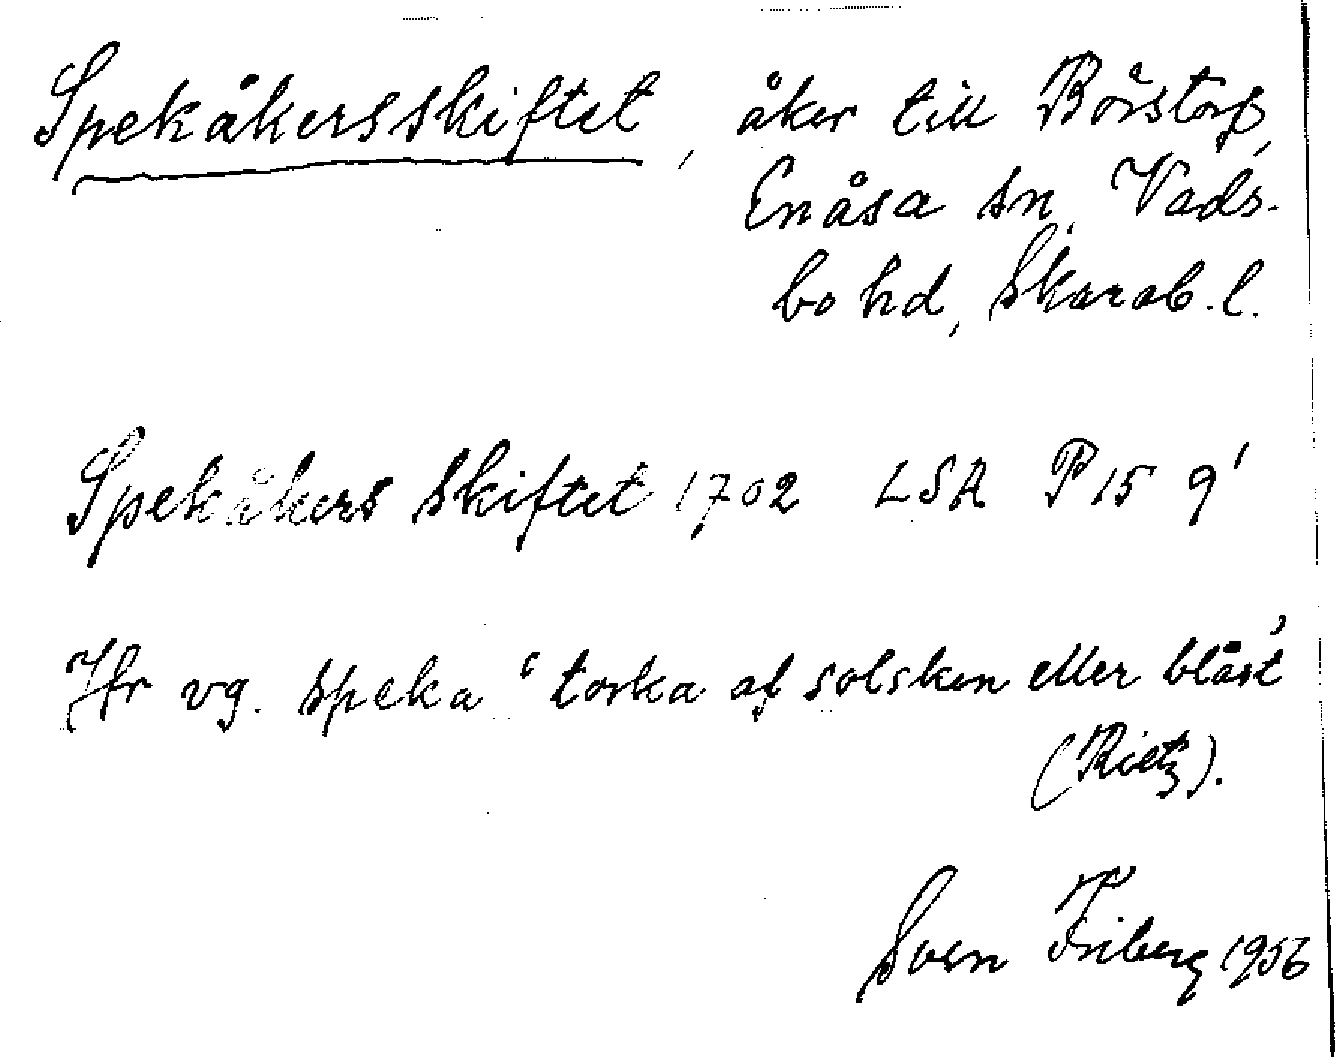 Spekåkersskiftet, åker till Börstorp,
Enåsa sn, Vads-
bo hd, Skarab.l.
Spekåkers skiftet 1702 LSA P15 9'
Jfr vg. speka 'torka af solsken eller blåst'
(Rietz).
Sven Friberg 1956